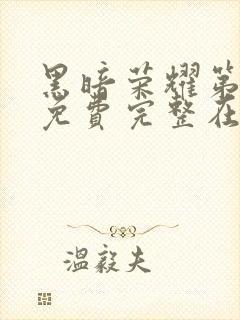 黑暗荣耀第
免费完整在
温毅夫